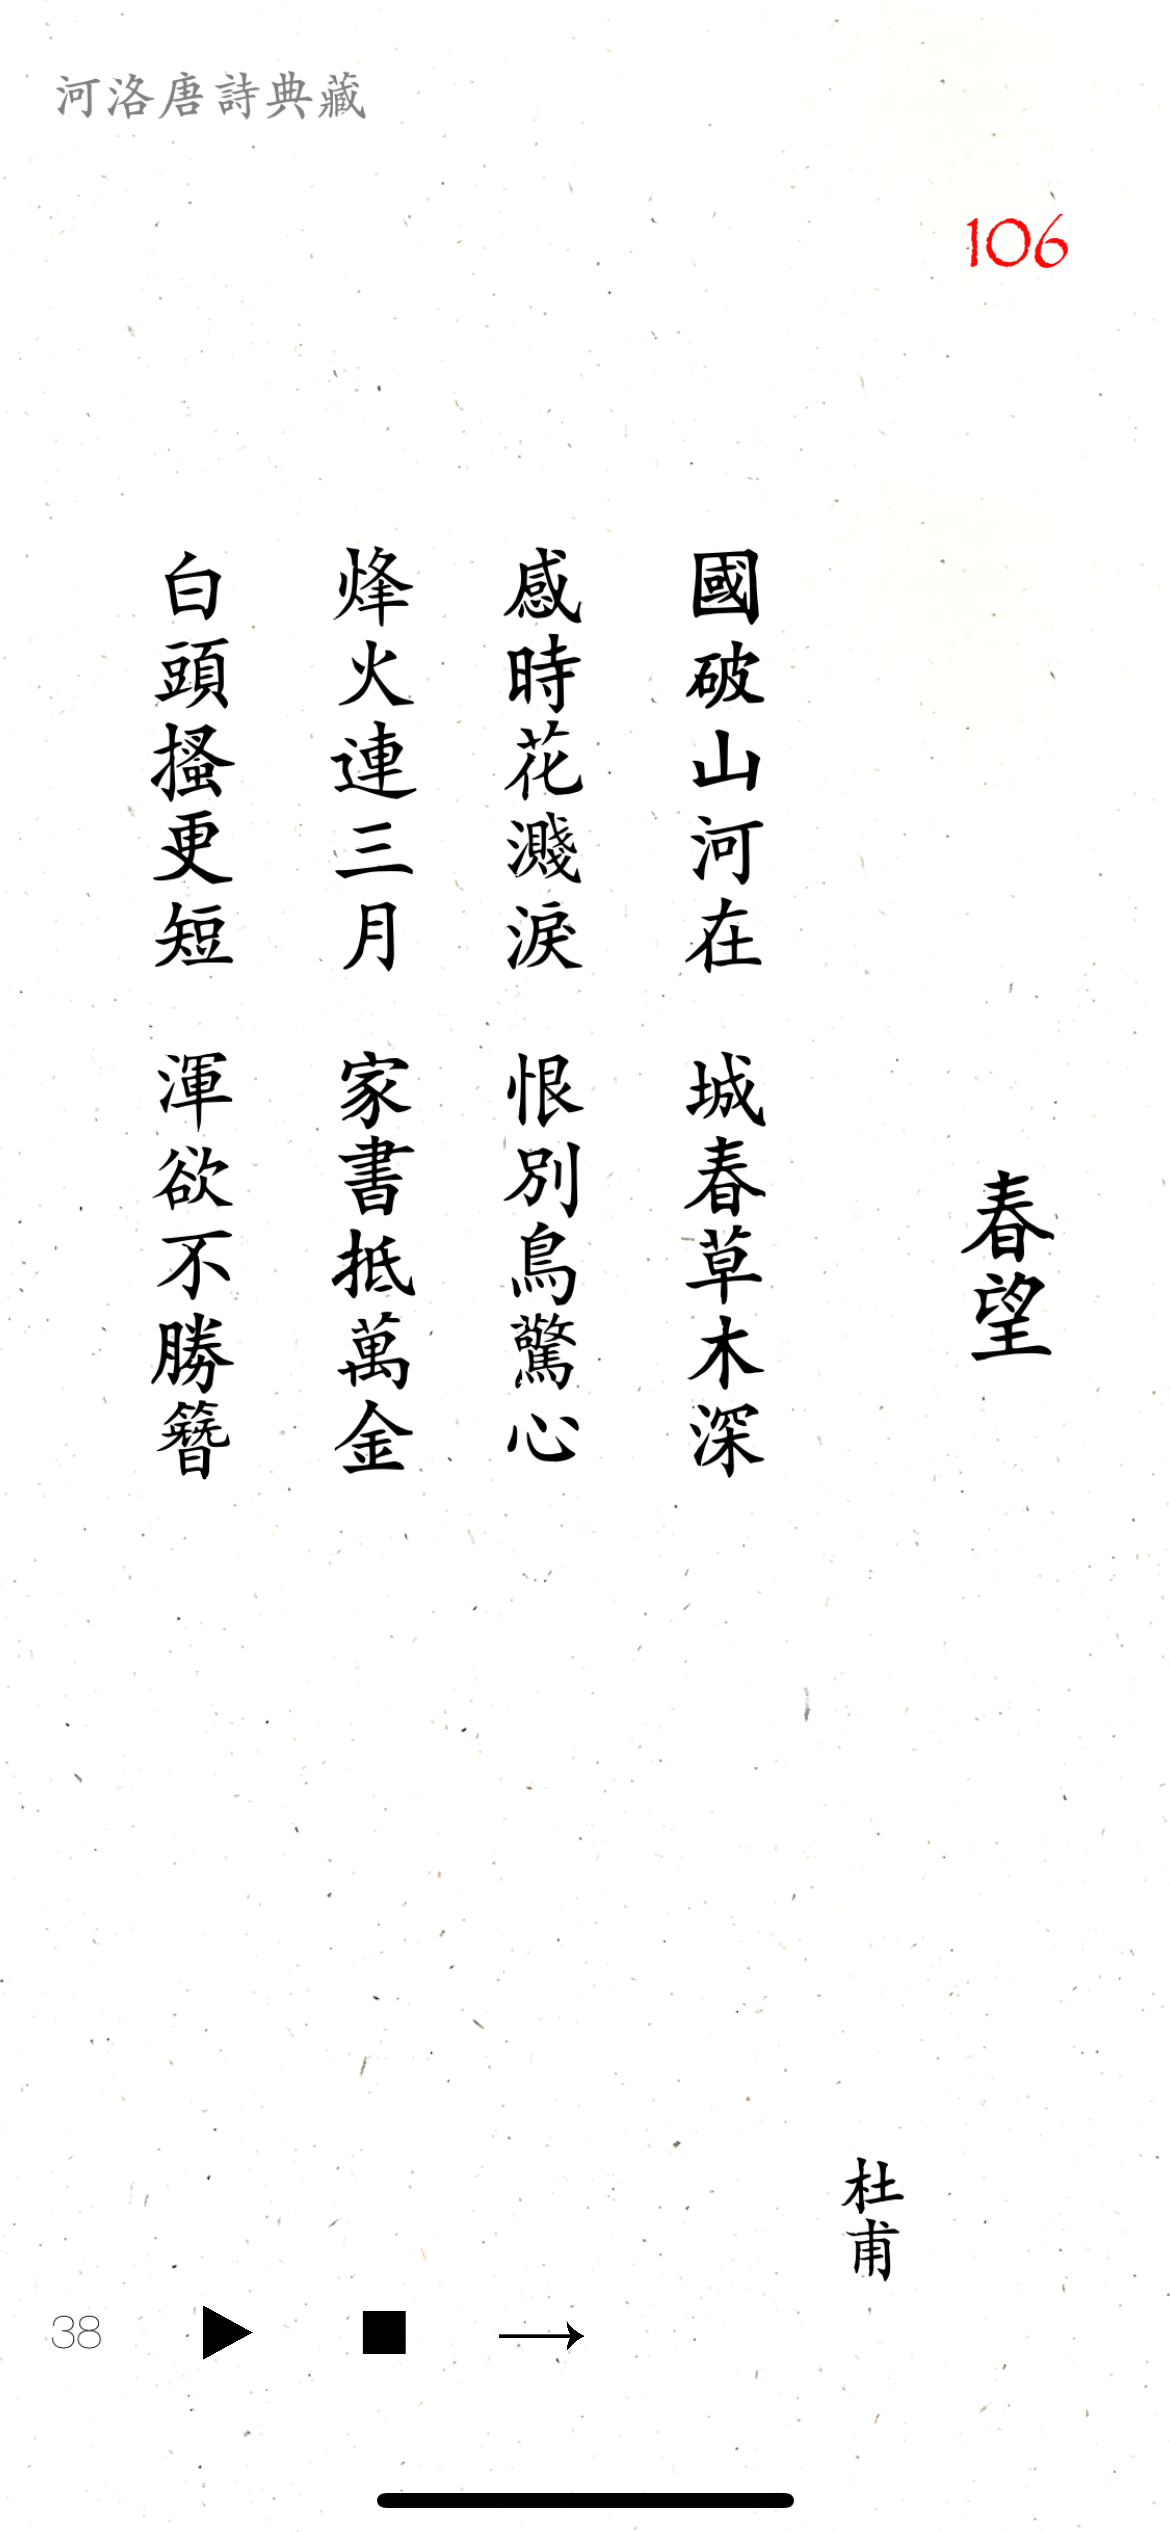 河洛唐詩典藏
106
春望
國破山河在　城春草木深
感時花濺淚　恨別鳥驚心
烽火連三月　家書抵萬金
白頭搔更短　渾欲不勝簪
杜甫
38